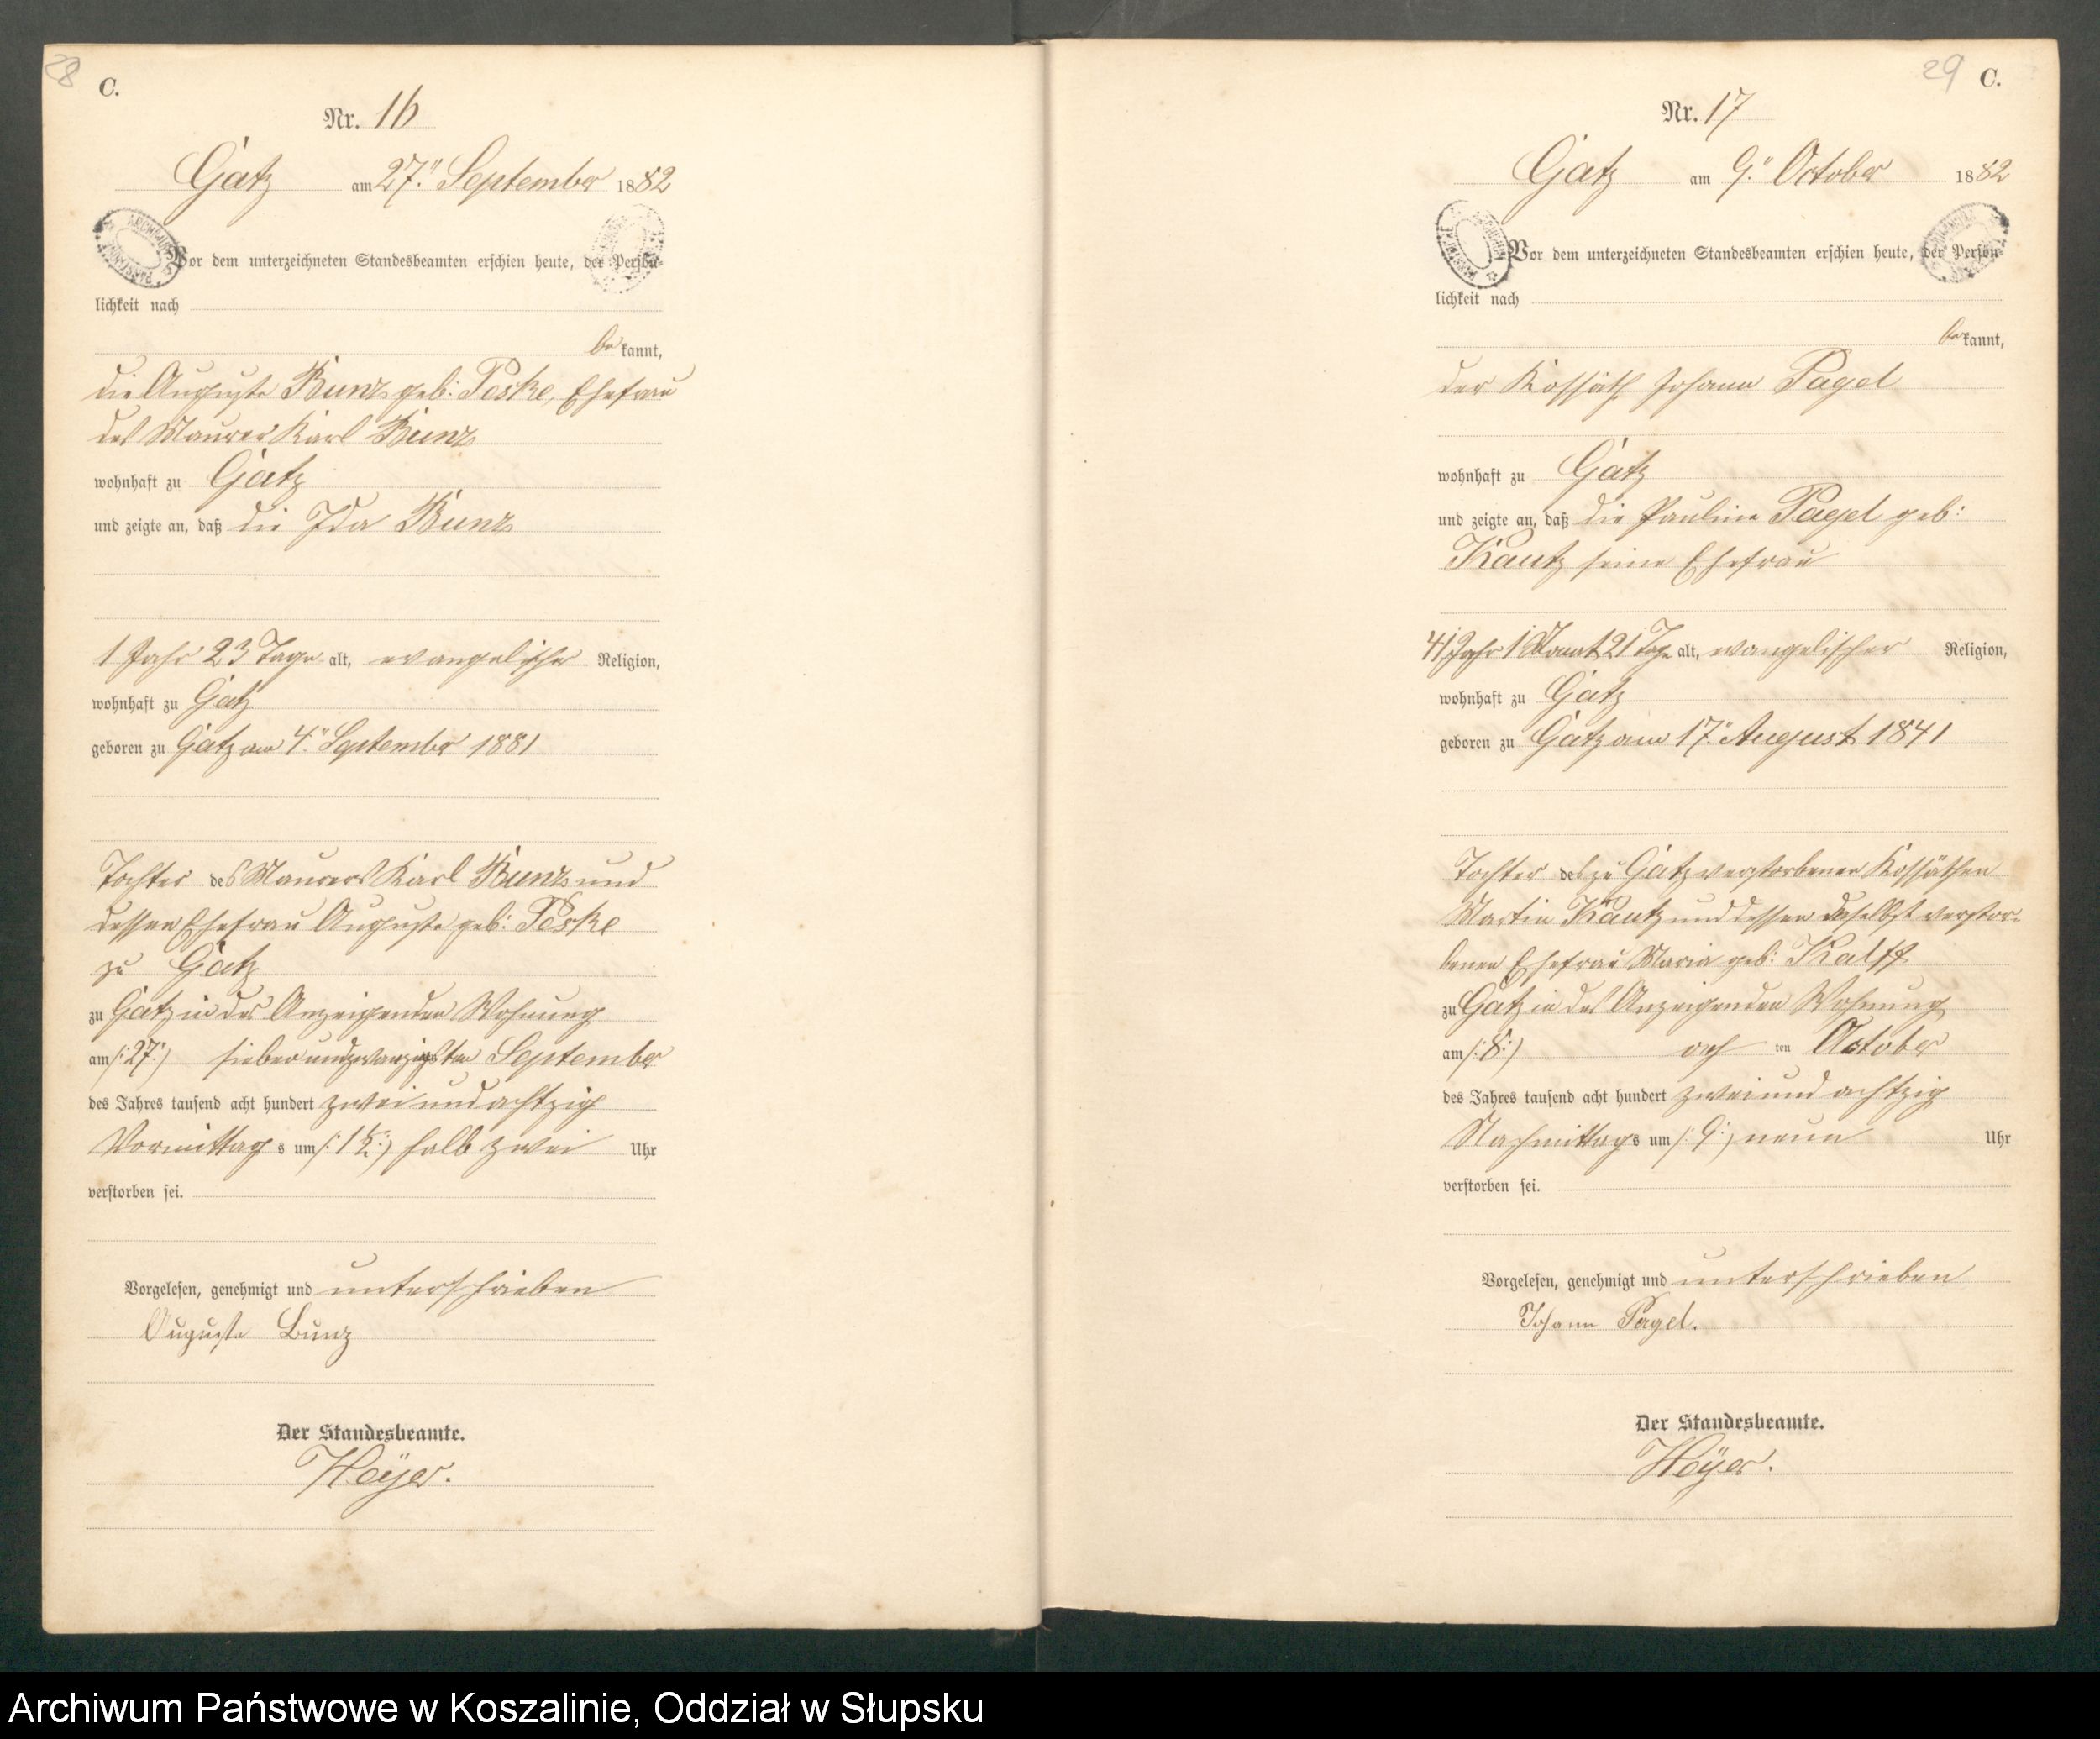 28
C.
Nr. 16
Gatz am 27." September 1882
Vor dem unterzeichneten Standesbeamten erschien heute, der Persön-
lichkeit nach
be kannt,
die Auguste Bunz geb: Peske, Ehefrau
des Maurer Karl Bunz
wohnhaft zu Gatz
und zeigte an, daß die Ida Bunz
1 Jahr 23 Tage alt, evangelischer Religion,
wohnhaft zu Gatz
geboren zu Gatz am 4." September 1881
Tochter des Maurers Karl Bunz und
dessen Ehefrau Auguste geb: Peske
zu Gatz
zu Gatz in der Anzeigenden Wohnung
am /:27:/ siebenundzwanzigsten September
des Jahres tausend acht hundert zwei und achtzig
Vormittag s um /:1½:/ halb zwei Uhr
verstorben sei.
Vorgelesen, genehmigt und unterschrieben
Auguste Bunz
Der Standesbeamte.
Heÿer.
29
C.
Nr. 17
Gatz am 9." October 1882
Vor dem unterzeichneten Standesbeamten erschien heute, der Persön-
lichkeit nach
be kannt,
der Kossäth Johann Pagel
wohnhaft zu Gatz
und zeigte an, daß die Pauline Pagel geb:
Kautz seine Ehefrau
41 Jahr 1 Monat 21 Tage alt, evangelischer Religion,
wohnhaft zu Gatz
geboren zu Gatz am 17." August 1841
Tochter des zu Gatz verstorbenen Kossäthen
Martin Kautz und dessen daselbst verstor-
benen Ehefrau Maria geb:
zu Gatz in des Anzeigenden Wohnung
am /:8:/ ach ten October
des Jahres tausend acht hundert zwei und achtzig
Nachmittag s um /:9:/ neun Uhr
verstorben sei.
Vorgelesen, genehmigt und unterschrieben
Johann Pagel.
Der Standesbeamte.
Heÿer.
Archiwum Państwowe w Koszalinie, Oddział w Słupsku